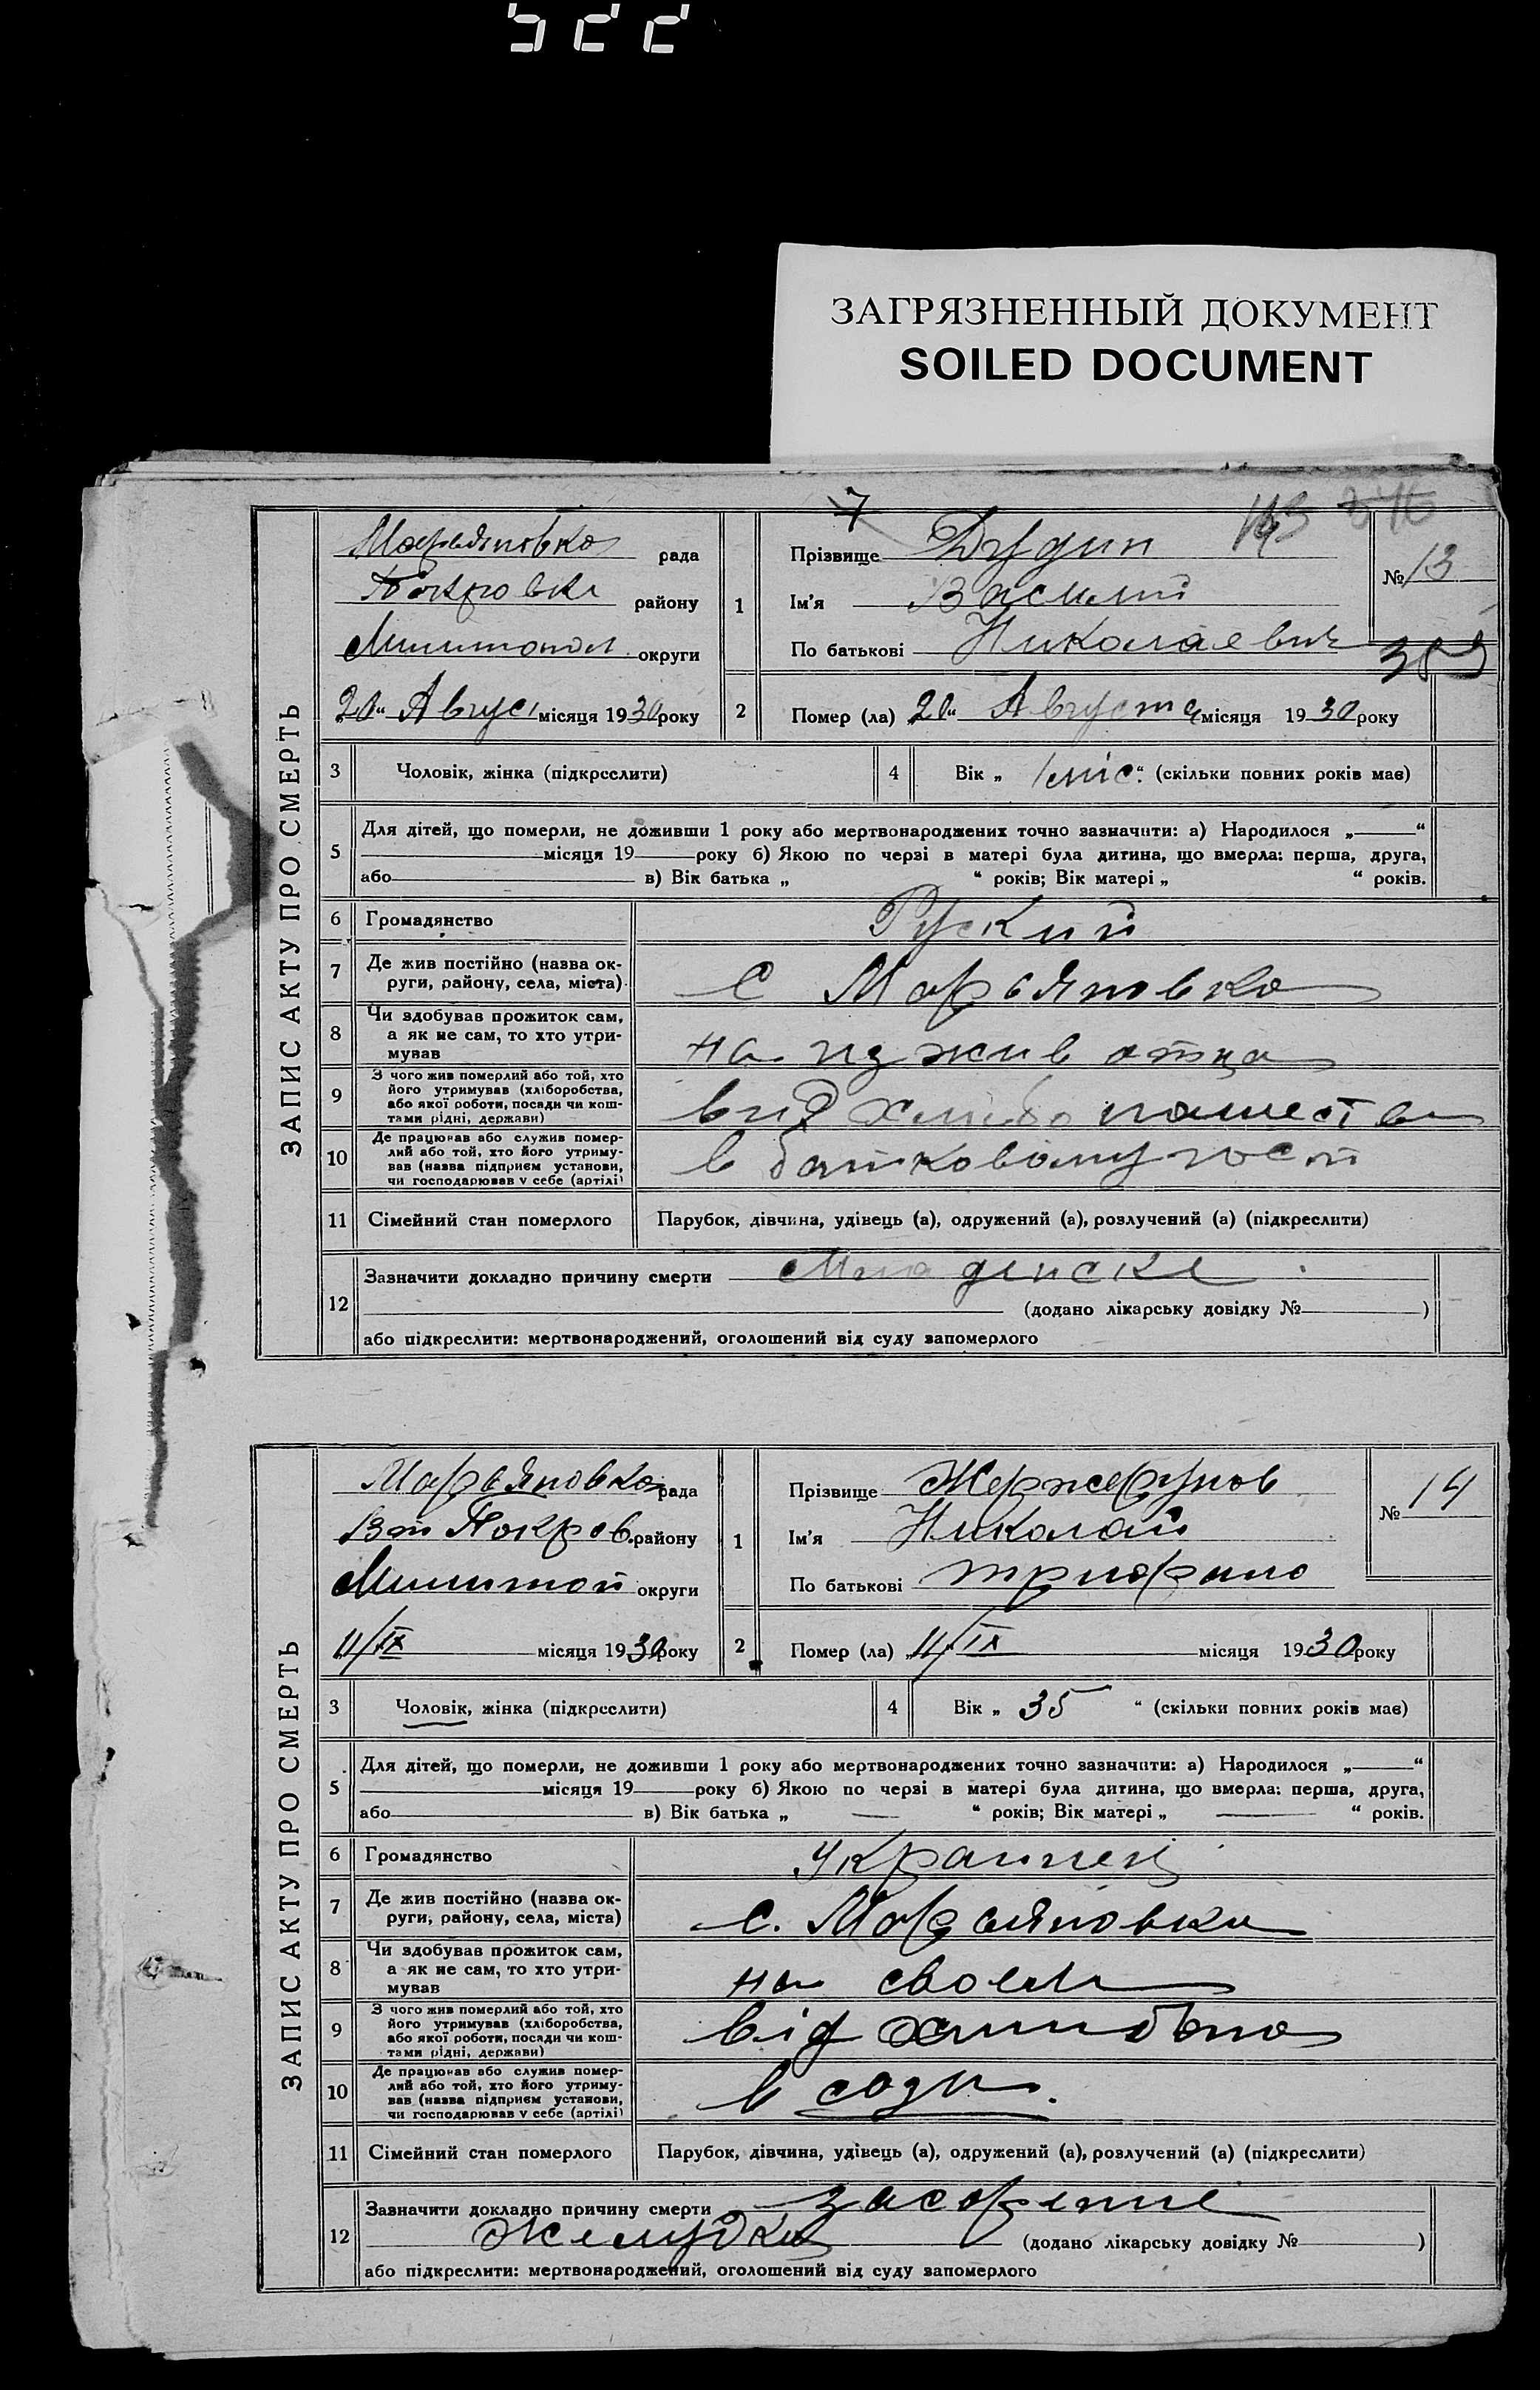 522
ЗАГРЯЗНЕННЫЙ ДОКУМЕНТ
SOILED DOCUMENT
7
ЗАПИС АКТУ ПРО СМЕРТЬ
Марьяновка рада
району
округи
20 „ Август місяця 1930 року
1
Прізвище Дудин
Ім'я Василий
По батькові Николаевич
№ 13
2
Помер (ла) 20 „ Августа місяця 1930 року
3
Чоловік, жінка (підкреслити)
4
Вік „ 1 міс. “ (скільки повних років має)
5
Для дітей, що померли, не доживши 1 року або мертвонароджених точно зазначити: а) Народилося „ “
місяця 19 року б) Якою по черзі в матері була дитина, що вмерла: перша, друга,
або в) Вік батька „ “ років; Вік матері „ “ років.
6
Громадянство
Руский
7
Де жив постійно (назва ок-
руги, району, села, міста)
С Марьяновка
8
Чи здобував прожиток сам,
а як не сам, то хто утри-
мував
на отца
9
З чого жив померлий або той, хто
його утримував (хліборобства,
або якої роботи, посади чи кош-
тами рідні, держави)
від
10
Де працював або служив помер-
лий або той, хто його утриму-
вав (назва підприєм установи,
чи господарював у себе (артілі)
в батьковому госп
11
Сімейний стан померлого
Парубок, дівчина, удівець (а), одружений (а), розлучений (а) (підкреслити)
12
Зазначити докладно причину смерти Младенске
(додано лікарську довідку № )
або підкреслити: мертвонароджений, оголошений від суду запомерлого
ЗАПИС АКТУ ПРО СМЕРТЬ
Марьяновка рада
Покров. району
округи
11/IX місяця 1930 року
1
Прізвище
Ім'я Николай
По батькові
№ 14
2
Помер (ла) „ 11/IX місяця 1930 року
3
Чоловік, жінка (підкреслити)
4
Вік „ 35 “ (скільки повних років має)
5
Для дітей, що померли, не доживши 1 року або мертвонароджених точно зазначити: а) Народилося „ “
місяця 19 року б) Якою по черзі в матері була дитина, що вмерла: перша, друга,
або в) Вік батька „ — “ років; Вік матері „ — “ років.
6
Громадянство
Украинец
7
Де жив постійно (назва ок-
руги, району, села, міста)
с. Марьяновка
8
Чи здобував прожиток сам,
а як не сам, то хто утри-
мував
на своем
9
З чого жив померлий або той, хто
його утримував (хліборобства,
або якої роботи, посади чи кош-
тами рідні, держави)
від
10
Де працював або служив помер-
лий або той, хто його утриму-
вав (назва підприєм установи,
чи господарював у себе (артілі)
в созі.
11
Сімейний стан померлого
Парубок, дівчина, удівець (а), одружений (а), розлучений (а) (підкреслити)
12
Зазначити докладно причину смерти засорение
желудка (додано лікарську довідку № )
або підкреслити: мертвонароджений, оголошений від суду запомерлого